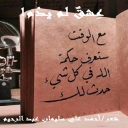 عشق لم يدم !
مع الوقت
ستعرف حكمة
الله في كل شيء
حدث لك
شعر/أحمد علي سليمان عبد الرحيم